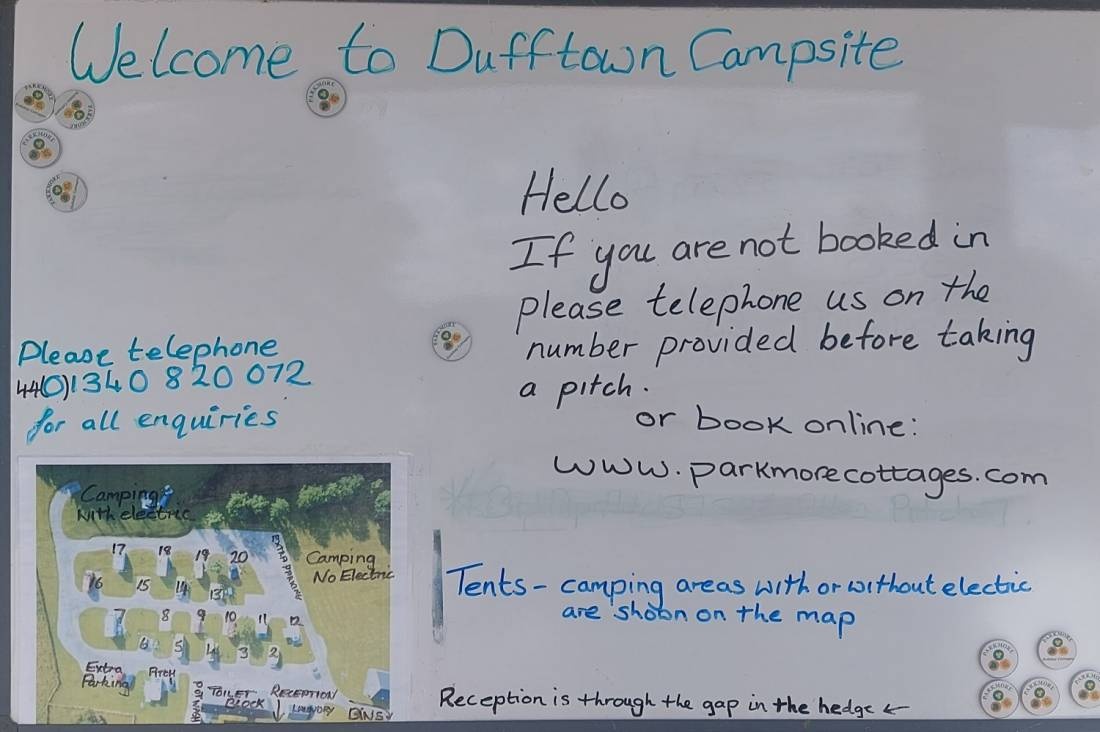 Welcome to Dufftown Campsite
Hello
If you are not booked in
please telephone us on the
number provided before taking
a pitch.
or book online:
www.parkmorecottages.com
Please telephone
44(0)1340 820 072
for all enquiries
Camping
with electric
17 18 19 20
EXTRA PARKING
Camping
No Electric
16 15 14 13
7 8 9 10 11 12
6 5 4 3 2
Extra
Parking
TOILET
BLOCK
RECEPTION
LAUNDRY
BINS
Tents - camping areas with or without electric
are shown on the map
Reception is through the gap in the hedge ←
PARKMORE
PARKMORE
PARKMORE
PARKMORE
PARKMORE
PARKMORE
PARKMORE
PARKMORE
PARKMORE